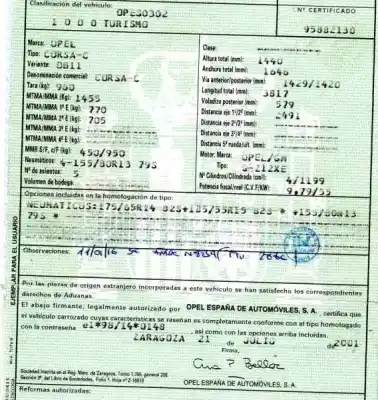 Clasificación del vehículo:
OPE60302
1 0 0 0 TURISMO
Nº CERTIFICADO
95882130
Marca: OPEL
Tipo: CORSA-C
Variante: 0B11
Denominación comercial: CORSA-C
Tara (kg): 960
MTMA/MMA (kg): 1455
MTMA/MMA 1º E (kg): 770
MTMA/MMA 2º E (kg): 705
MTMA/MMA 3º E (kg):
MTMA/MMA 4º E (kg):
MMR S/F, c/F (kg): 450/950
Neumáticos: 4-155/80R13 79S
Nº de asientos: 5
Volumen de bodega:
Clase:
Altura total (mm): 1440
Anchura total (mm): 1646
Vía anterior/posterior (mm): 1429/1420
Longitud total (mm): 3817
Voladizo posterior (mm): 579
Distancia eje 1º/2º (mm): 2491
Distancia eje 2º/3º (mm):
Distancia eje 3º/4º (mm):
Distancia 5ª rueda/ult. (mm):
Motor: Marca: OPEL/GM
Tipo:
Nº Cilindros/Cilindrada (cm3): 4/1199
Potencia fiscal/real (C.V.F/KW): 9,79/55
Opciones incluidas en la homologación de tipo:
NEUMATICOS:175/65R14 82S+185/55R15 82S * +155/80R13
79S *
Observaciones: 11/0/16 se
Por las piezas de origen extranjero incorporadas a este vehículo se han satisfecho los correspondientes
derechos de Aduanas.
El abajo firmante, legalmente autorizado por OPEL ESPAÑA DE AUTOMÓVILES, S. A., certifica que
el vehículo carrozado cuyas características se reseñan es completamente conforme con el tipo homologado
con la contraseña e1*98/14*0148 , así como con las opciones arriba incluidas.
ZARAGOZA 21 de JULIO de 2001
Firma,
Sociedad Inscrita en el Reg. Merc. de Zaragoza, Tomo 1.766, general 205
OPEL ESPAÑA DE AUTOMÓVILES, S. A.
Reformas autorizadas:
EJEMPLAR PARA EL USUARIO